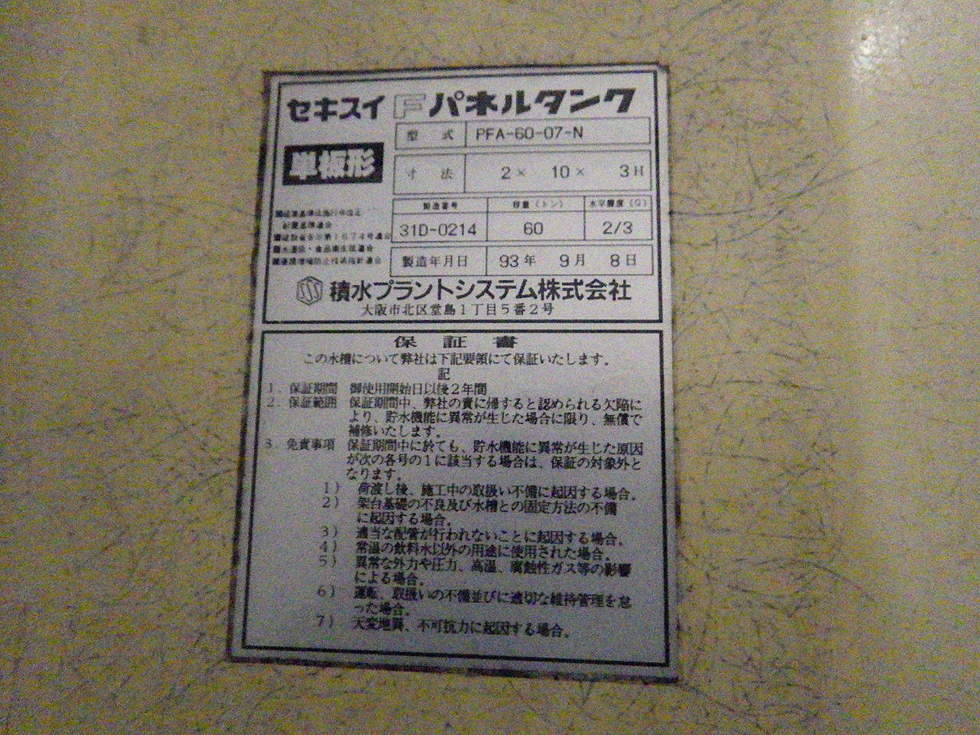 セキスイ Fパネルタンク
単板形
型 式 PFA-60-07-N
寸 法 2× 10× 3H
製造番号 容量(トン) 水平震度(G)
31D-0214 60 2/3
製造年月日 93年 9月 8日
積水プラントシステム株式会社
大阪市北区堂島1丁目5番2号
保証書
この水槽について弊社は下記要領にて保証いたします。
記
1. 保証期間 御使用開始日以後2年間
2. 保証範囲 保証期間中、弊社の責に帰すると認められる欠陥に
より、貯水機能に異常が生じた場合に限り、無償で
補修いたします。
3. 免責事項 保証期間中に於ても、貯水機能に異常が生じた原因
が次の各号の1に該当する場合は、保証の対象外と
なります。
1) 荷渡し後、施工中の取扱い不備に起因する場合。
2) 架台基礎の不良及び水槽との固定方法の不備
に起因する場合。
3) 適当な配管が行われないことに起因する場合。
4) 常温の飲料水以外の用途に使用された場合。
5) 異常な外力や圧力、高温、腐蝕性ガス等の影響
による場合。
6) 運転、取扱いの不備並びに適切な維持管理を怠
った場合。
7) 天変地異、不可抗力に起因する場合。